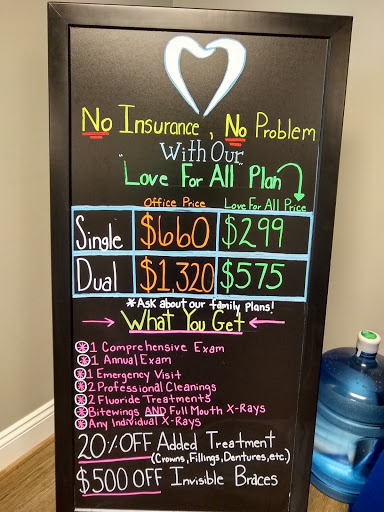 No Insurance, No Problem
With Our
"Love For All Plan"
Office Price Love For All Price
Single $660 $299
Dual $1,320 $575
*Ask about our family plans!
What You Get
*1 Comprehensive Exam
*1 Annual Exam
*1 Emergency Visit
*2 Professional Cleanings
*2 Fluoride Treatments
*Bitewings AND Full Mouth X-Rays
*Any Individual X-Rays
20% OFF Added Treatment
(Crowns, Fillings, Dentures, etc.)
$500 OFF Invisible Braces